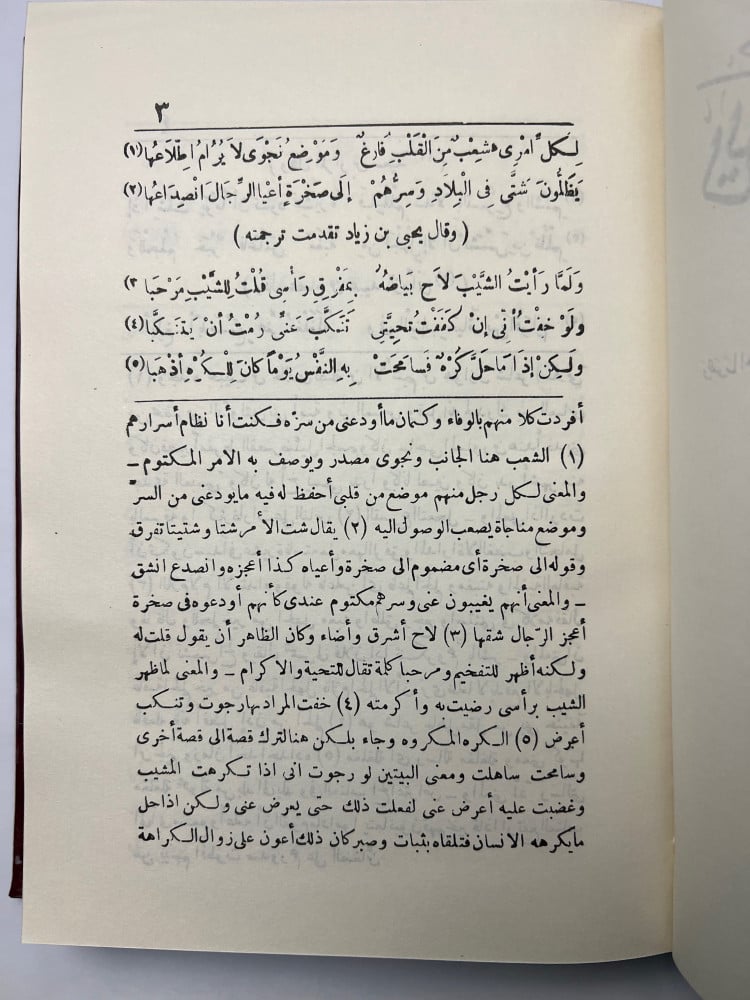 ٣
لِكلِّ امْرِىءٍ شِعْبٌ مِنَ الْقَلْبِ فَارِغٌ وَمَوْضِعُ نَجْوَى لاَ يُرَامُ اطِّلاَعُهَا (١)
يَظَلُّونَ شَتَّى فِى الْبِلاَدِ وَسِرُّهُمْ إِلَى صَخْرَةٍ أَعْيَا الرِّجَالَ انْصِدَاعُهَا (٢)
( وقال يحيى بن زياد تقدمت ترجمته )
وَلَمَّا رَأَيْتُ الشَّيْبَ لاَحَ بَيَاضُهُ بِمَفْرِقِ رَأْسِى قُلْتُ لِلشَّيْبِ مَرْحَبا ٣)
وَلَوْ خِفْتُ أَنِّى إِنْ كَفَفْتُ تَحِيَّتِى تَنَكَّبَ عَنِّى رُمْتُ أَنْ يَتَنَكَّبا (٤)
وَلَكِنْ إِذَا مَا حَلَّ كُرْهٌ فَسَامَحَتْ بِهِ النَّفْسُ يَوْماً كَانَ لِلْكُرْهِ أَذْهَبَا (٥)
أفردت كلا منهم بالوفاء وكتمان ما أودعنى من سره فكنت أنا نظام أسرارهم
(١) الشعب هنا الجانب ونجوى مصدر ويوصف به الامر المكتوم ـ
والمعنى لكل رجل منهم موضع من قلبى أحفظ له فيه ما يودعنى من السرّ
وموضع مناجاة يصعب الوصول اليه (٢) يقال شت الأمر شتا وشتيتا تفرق
وقوله الى صخرة أى مضموم الى صخرة وأعياه كذا أعجزه وانصدع انشق
ـ والمعنى أنهم يغيبون عنى وسرهم مكتوم عندى كأنهم أودعوه فى صخرة
أعجز الرّجال شقها (٣) لاح أشرق وأضاء وكان الظاهر أن يقول قلت له
ولكنه أظهر للتفخيم ومرحبا كلمة تقال للتحية والاكرام ـ والمعنى لما ظهر
الشيب برأسى رضيت به وأكرمته (٤) خفت المراد بها رجوت وتنكب
أعرض (٥) الكره المكروه وجاء بلكن هنا لترك قصة الى قصة أخرى
وسامحت ساهلت ومعنى البيتين لو رجوت انى اذا تكرهت المشيب
وغضبت عليه أعرض عنى لفعلت ذلك حتى يعرض عنى ولكن اذا حل
ما يكرهه الانسان فتلقاه بثبات وصبر كان ذلك أعون على زوال الكراهة